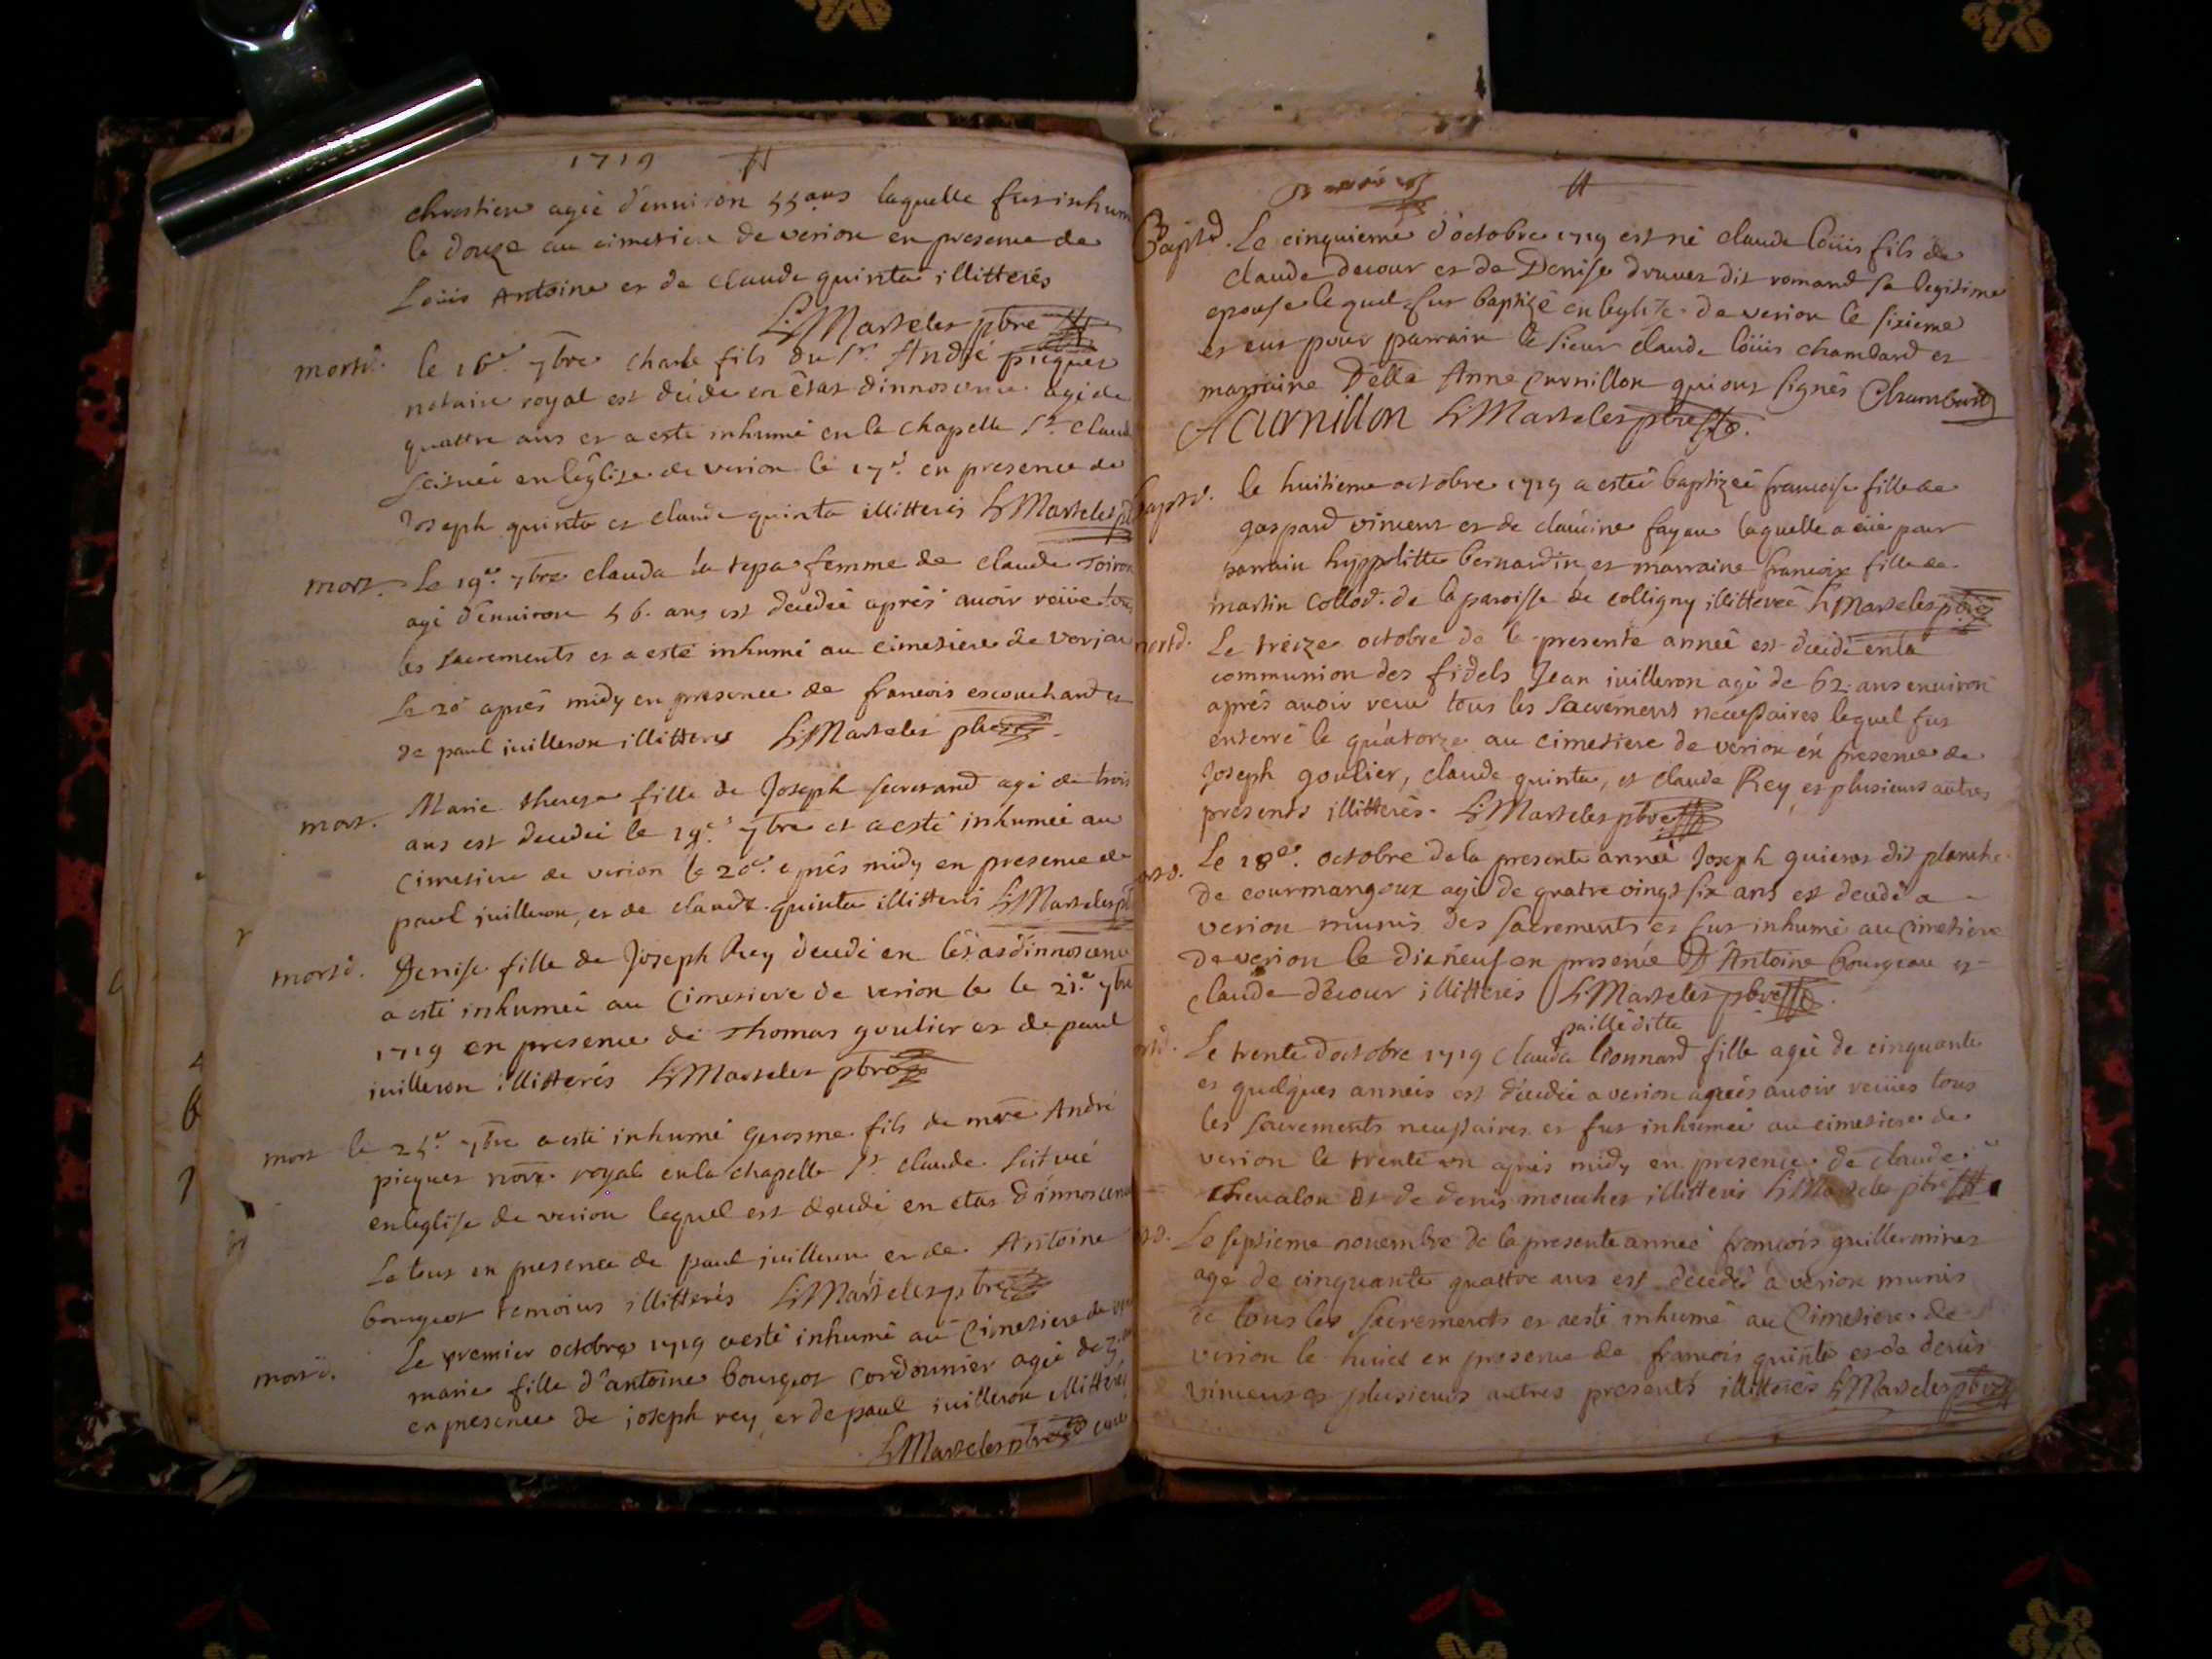 1719
chrestien agée d'enuiron 55 ans laquelle fut inhum
le douze au cimetiere de verion en presence de
Loüis Antoine et de claude quinta illitterés
LMarteler pbre
mortd. le 16e 7bre charle fils du Sr. André picquet
notaire royal est décédé en êtat d'innoscence agé de
quattre ans et a esté inhumé en la chapelle St. claude
scituée en l'église de verion le 17e. en presence de
Joseph quinta et claude quinta illitterés LMarteler
mort. Le 19e. 7bre clauda la tepa femme de claude Toiron
agé d'enuiron 56. ans est decedée aprés auoir reüe tou
les sacrements et a esté inhumé au cimetiere de verjon
le 20e aprés midy en presence de francois escouchard et
de paul iuilleron illitteres LMarteler pbre
mort. Marie therese fille de Joseph secretand agé de trois
ans est decedée le 19e. 7bre et a esté inhumée au
Cimetiere de verion le 20e. aprés midy en presence de
paul juilleron, et de claude quinta illitterés LMarteler
mortd. Denise fille de Joseph Rey decedé en l'étas d'innoscence
a esté inhumée au Cimetiere de verion le le 21e. 7bre
1719 en presence de Thomas goulier et de paul
iuilleron illitterés LMarteler pbre
mort le 25e 7bre a esté inhumé Gerosme fils de mre André
picquet nore. royal en la chapelle St claude scituée
en l'eglise de verion lequel est decedé en etat d'innoscence
Le tout en presence de paul juilleron et de Antoine
bourgeot temoins illitterés LMarteler pbre
mortd. Le premier octobre 1719 a esté inhumé au Cimetiere de
marie fille d'antoine bourgeot cordonnier agée de 3
en presence de joseph rey, et de paul iuilleron illitterés
LMarteler pbre curé
Baptd. Le cinquieme d'octobre 1719 est né claude loüis fils de
claude decour et de Denise druuet dit romand sa legitime
epouse lequel fut baptizé en leglize de verion le sixieme
et eut pour parrain le sieur claude loüis chambard et
marraine Delle Anne Curnillon qui ont signés Chambard
ACurnillon LMarteler pbre
baptd. le huitieme octobre 1719 a estée baptizée francoise fille de
gaspard vincent et de claudine fayeu laquelle a eüe pour
parrain hyppolitte bernardin, et marraine francoise fille de
martin collod. de la paroisse de colligny illitterée LMarteler pbre
mortd. Le treize octobre de la presente année est decedé en la
communion des fidels Jean iuilleron agé de 62. ans enuiron
aprés auoir receu tous les sacrements necessaires lequel fut
enterré le quatorze au cimetiere de verion en presence de
Joseph goulier, claude quinta, et claude Rey, et plusieurs autres
presents illitterés. LMarteler pbre
Le 18e. octobre de la presente année Joseph guieret dit planche
de courmangoux agé de quatre vingt six ans est decedé a
verion munis des sacrements et fut inhumé au Cimetiere
de verion le dixneuf en presence D'Antoine bourgeau et
claude decour illitterés LMarteler pbre
paille ditte
Le trente d'octobre 1719 clauda bonnard fille agée de cinquante
et quelques années est decedée a verion aprés auoir receües tous
les sacrements necessaires et fut inhumée au cimetiere de
verion le trente un aprés midy en presence de claude
chevalon et de denis mouchet illitterés LMarteler pbre
Le septieme nouembre de la presente année francois guillerminet
agé de cinquante quattre ans est decedé a verion munis
de tous les sacrements et a esté inhumé au Cimetiere de
verion le huict en presence de francois quinta et de denis
vincent et plusieurs autres presents illitterés LMarteler pbre